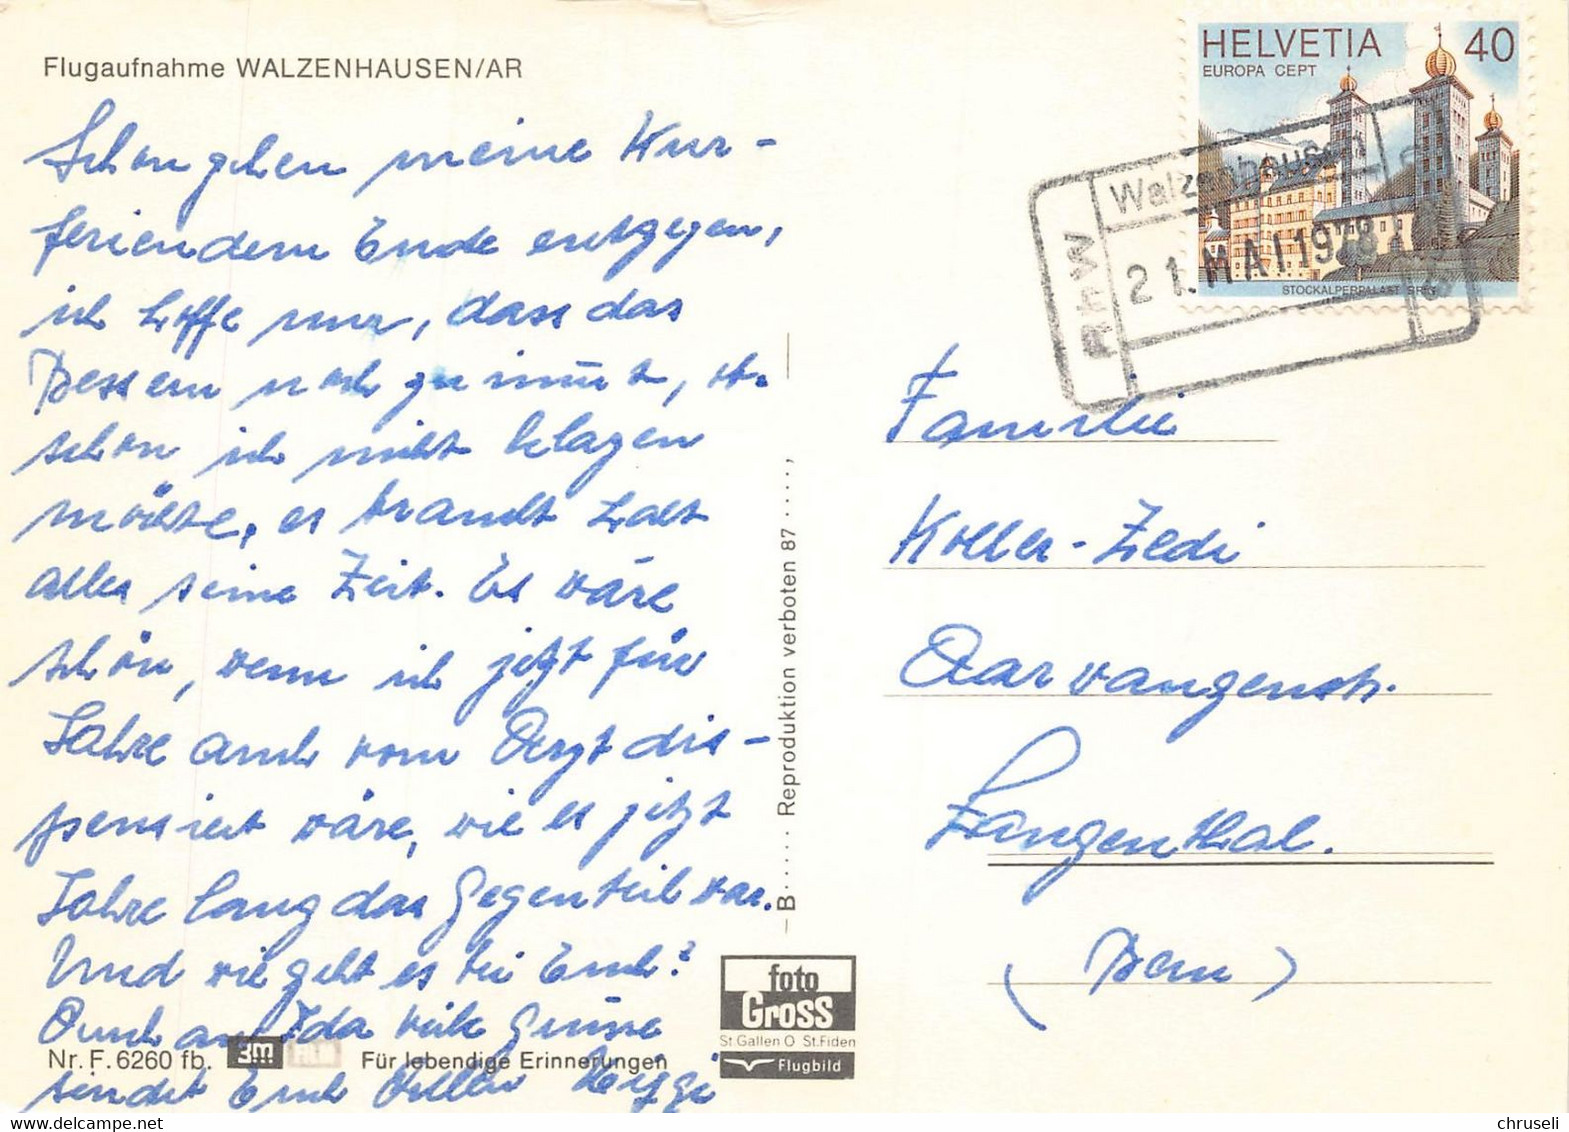 Flugaufnahme WALZENHAUSEN/AR
Schon gehen meine Kur-
feriendem Ende entgegen,
ich hoffe nur, dass das
Bessern noch zunimmt, ob-
schon ich nicht klagen
möchte, es braucht halt
alles seine Zeit. Es wäre
schön, wenn ich jetzt für
Jahre auch vom Arzt dis-
pensiert wäre, wie es jetzt
Jahre lang das Gegenteil war.
Und wie geht es bei Euch?
Auch an Ida viele Grüsse
sendet Euch Allen
Nr. F. 6260 fb. 3m
Für lebendige Erinnerungen
B..... Reproduktion verboten 87 .....,
foto
Gross
St. Gallen O St. Fiden
Flugbild
HELVETIA 40
EUROPA CEPT
STOCKALPERPALAST BRIG
Walzenhausen
RhW
21. MAI 1978
Familie
Koller-Zedi
Aarwangenstr.
Langenthal.
(Bern)
chruseli